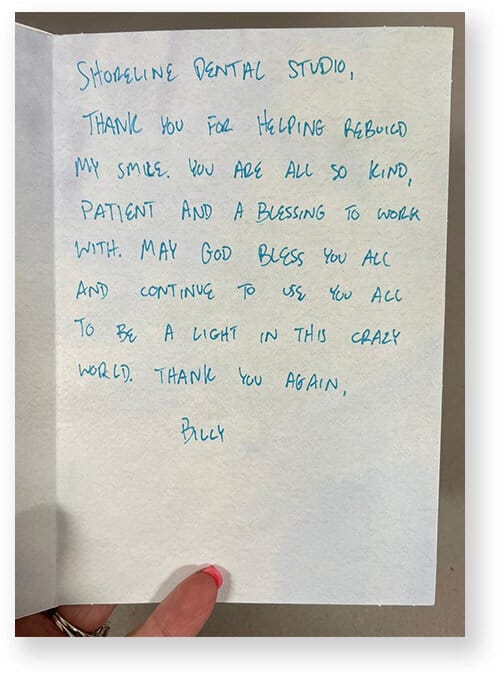 SHORELINE DENTAL STUDIO,
THANK YOU FOR HELPING REBUILD
MY SMILE. YOU ARE ALL SO KIND,
PATIENT AND A BLESSING TO WORK
WITH. MAY GOD BLESS YOU ALL
AND CONTINUE TO USE YOU ALL
TO BE A LIGHT IN THIS CRAZY
WORLD. THANK YOU AGAIN,
BILLY